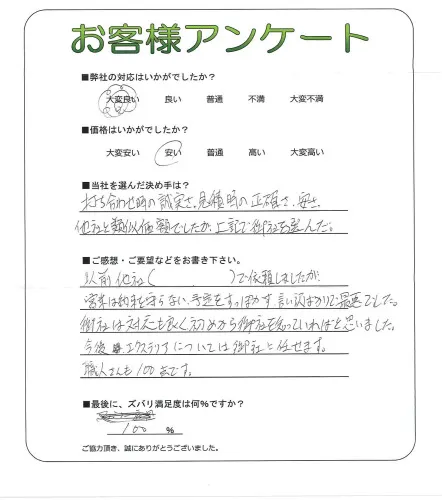 お客様アンケート
■弊社の対応はいかがでしたか?
大変良い 良い 普通 不満 大変不満
■価格はいかがでしたか?
大変安い 安い 普通 高い 大変高い
■当社を選んだ決め手は?
打ち合わせ時の誠実さ、見積時の正確さ、安さ
他社と類似価額でしたが、上記で御社を選んだ。
■ご感想・ご要望などをお書き下さい。
以前他社( )で依頼しましたが、
営業は約束を守らない、予定をすっぽかす、言い訳ばかりで最悪でした。
御社は対応も良く初めから御社を知っていればと思いました。
今後 エクステリアについては御社に任せます。
職人さんも100点です。
■最後に、ズバリ満足度は何%ですか?
100 %
ご協力頂き、誠にありがとうございました。